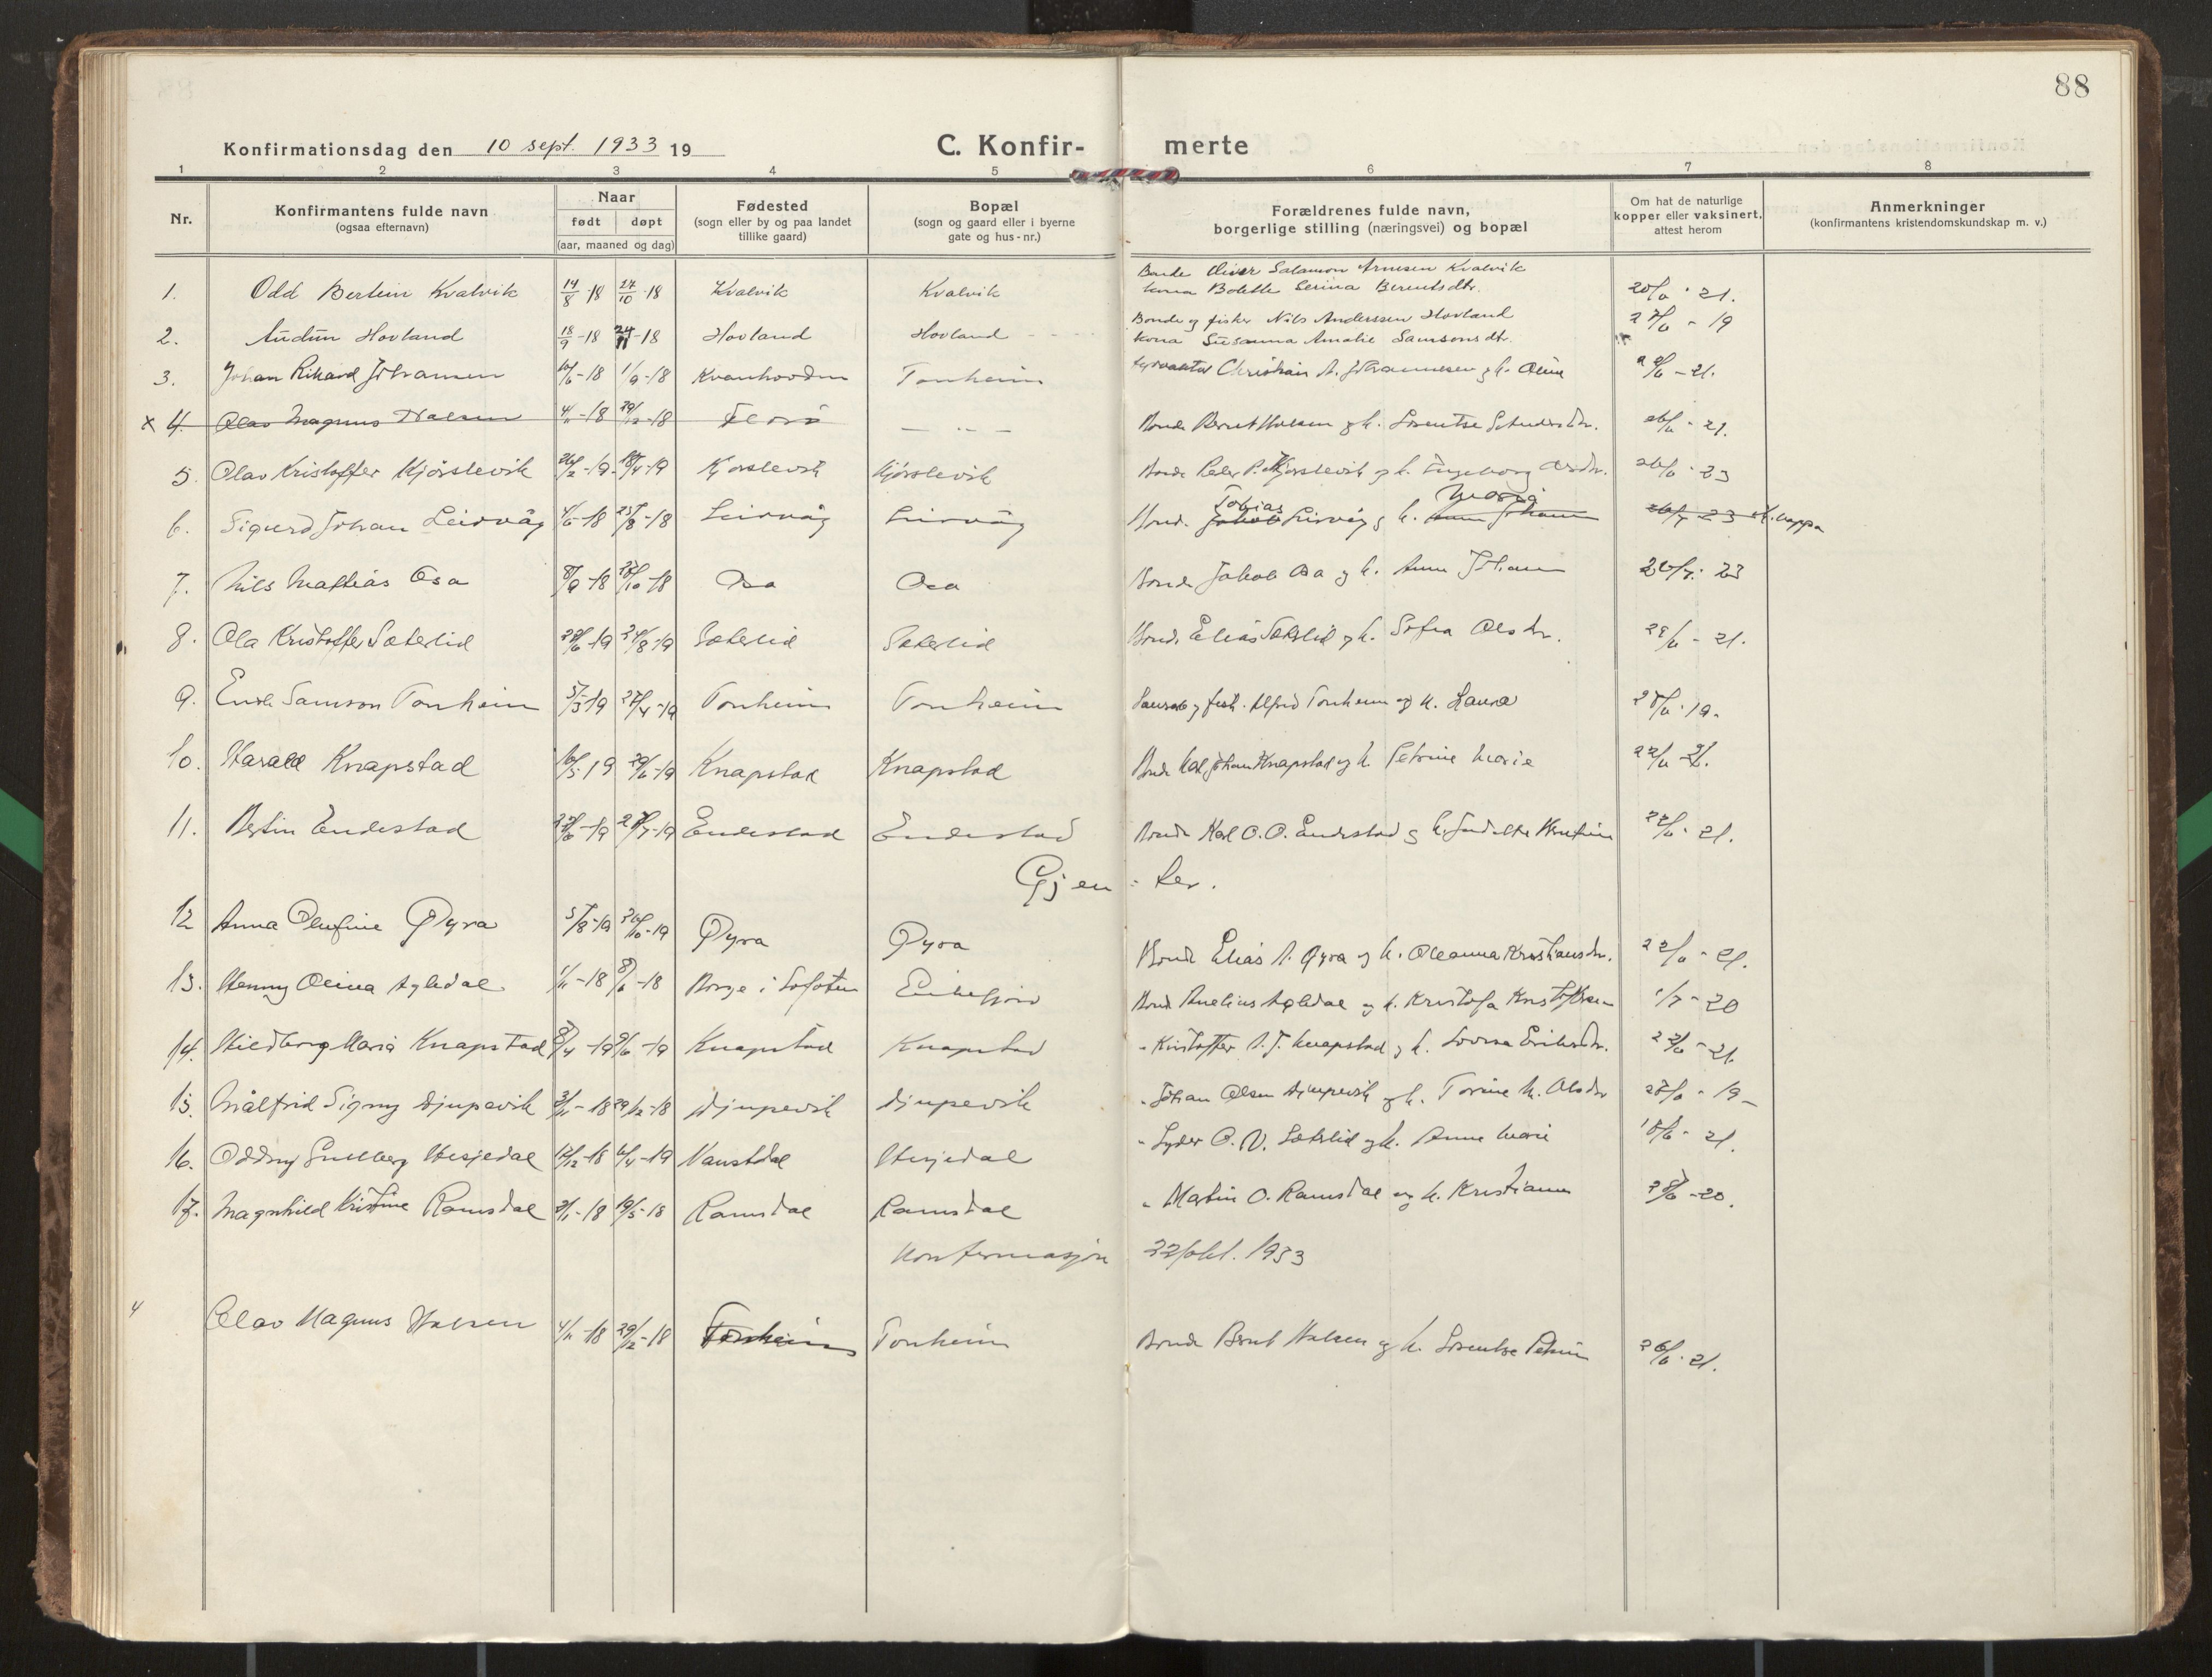 88
Konfirmationsdag den 10 sept. 1933 19
C. Konfir- merte
1 2 3 4 5 6 7 8
Nr.
Konfirmantens fulde navn
(ogsaa efternavn)
Naar
født døpt
(aar, maaned og dag)
Fødested
(sogn eller by og paa landet
tillike gaard)
Bopæl
(sogn og gaard eller i byerne
gate og hus-nr.)
Forældrenes fulde navn,
borgerlige stilling (næringsvei) og bopæl
Om hat de naturlige
kopper eller vaksinert,
attest herom
Anmerkninger
(konfirmantens kristendomskundskap m. v.)
1. Odd Bertein Kvalvik 14/8-18 27/10-18 Kvalvik Kvalvik Bonde Oliver Salamon Arnesen Kvalvik
kona Bolette Serina Berentsdtr. 21.
2. Audun Hovland 18/9-18 24/11-18 Hovland Hovland Bonde og fisker Nils Anderssen Hovland
kona Susanna Amalie Samsonsdtr. 27/6-19
3. Johan Rikard Johansen 1/9-18 Tonheim Christian A. Johannesen og k. Oline -21.
x 4. Olav Magnus Halsen 4/11-18 29/12-18 Florø Bonde Bernt Halsen og k. Lorentse 26/6-21.
5. Olav Kristoffer Kjørslevik 26/2-19 18/4-19 Kjørslevik Kjørslevik Bonde Peder P. Kjørslevik og k. Ingeborg 26/6-23
6. Sigurd Johan Leirvåg 25/8-18 Leirvåg Leirvåg Bonde Jakob Tobias Leirvåg og k. Anna Johanna Maria 23
7. Nils Mattias Osa 8/9-18 Osa Osa Bonde Jakob Osa og k. Anna Johanne 26/7-23
8. Ola Kristoffer Sæterlid 29/6-19 24/8-19 Sæterlid Sæterlid Bonde Elias Sæterlid og k. Sofia Olsdtr. 21.
9. Samson Tonheim 5/3-19 27/4-19 Tonheim Tonheim Alfred Tonheim og k. Laura 19.
10. Harald Knapstad 16/5-19 29/6-19 Knapstad Knapstad Bonde Johan Knapstad og k. Petrine Marie 22/6-21.
11. Bertin Endestad Endestad Endestad Bonde Karl O. O. Endestad og k. 22/6-21.
Gjen- ter.
12 Anna Olufine Øyra 5/8-19 26/10-19 Øyra Øyra Bonde Elias A. Øyra og k. Oleanna Kristiansdtr. 22/6-21.
13. Henny Olina Agledal 1/11-18 Borge i Lofoten Eikefjord Bonde Anelius Agledal og k. Kristofa 1/7-20
14. Hildborg Maria Knapstad 8/4-19 9/6-19 Knapstad Knapstad - Kristoffer A. J. Knapstad og k. Lovisa Eriksdtr. 22/6-21.
15. Målfrid Signy Djupevik 3/11-18 29/12-18 Djupevik Djupevik - Johan Olsen Djupevik og k. Torine M. Olsdtr 19-
16. Oddny Gullborg Hesjedal 12/12-18 6/4-19 Naustdal Hesjedal - Lyder O. N. Sæterlid og k. Anna Marie 18/6-21.
17. Magnhild Kristine Ramsdal 2/1-18 19/5-18 Ramsdal Ramsdal - Martin O. Ramsdal og k. Kristianna 28/6-20.
Konfirmasjon 22/okt. 1933
4 Olav Magnus Halsen 4/11-18 29/12-18 Tonheim Tonheim Bonde Bernt Halsen og k. Lorentse Petrine 26/6-21.